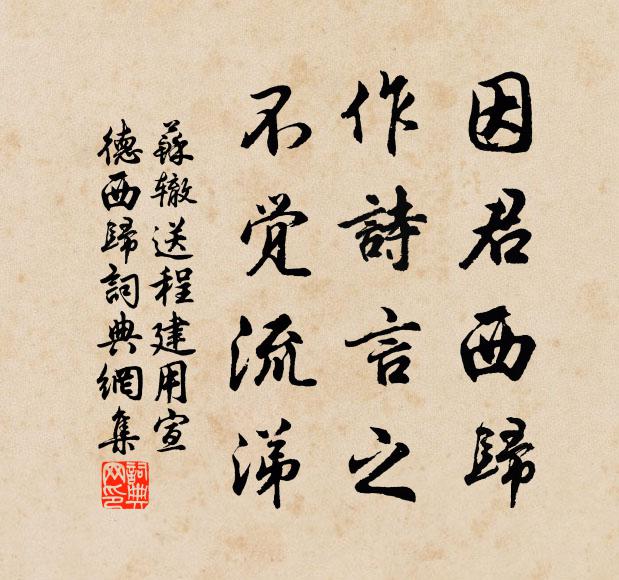 因君西歸
作詩言之
不觉流涕
蘇辙送程建用宣
德西歸詞典網集
詞典
网印